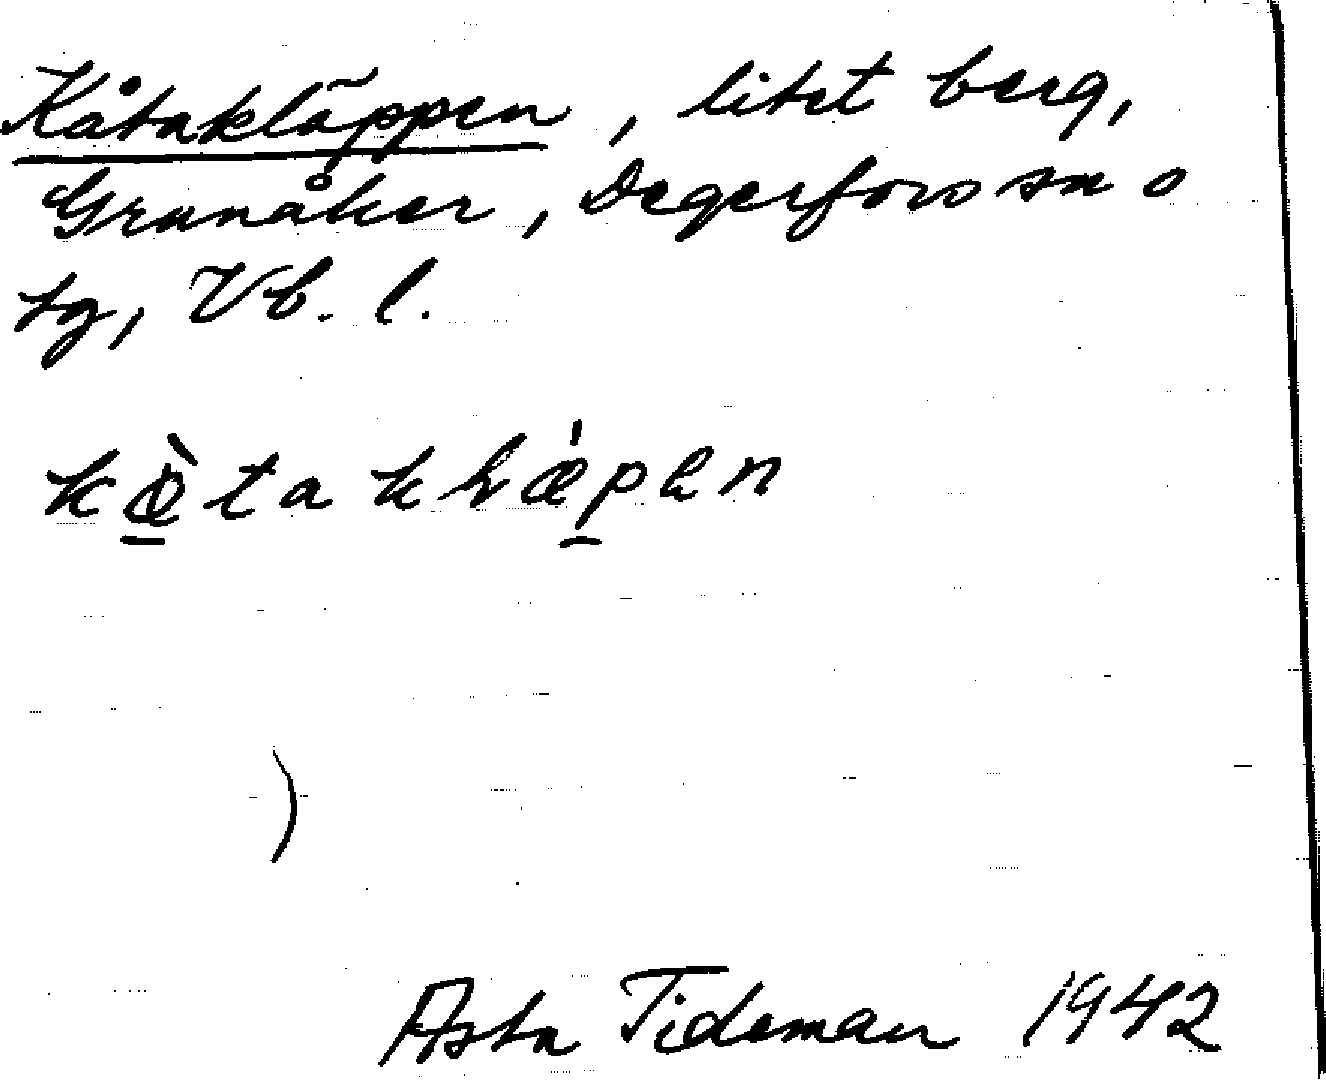 Kåtakläppen, litet berg,
Granåker, Degerfors sn o
tg, Vb. l.
Asta Tideman 1942